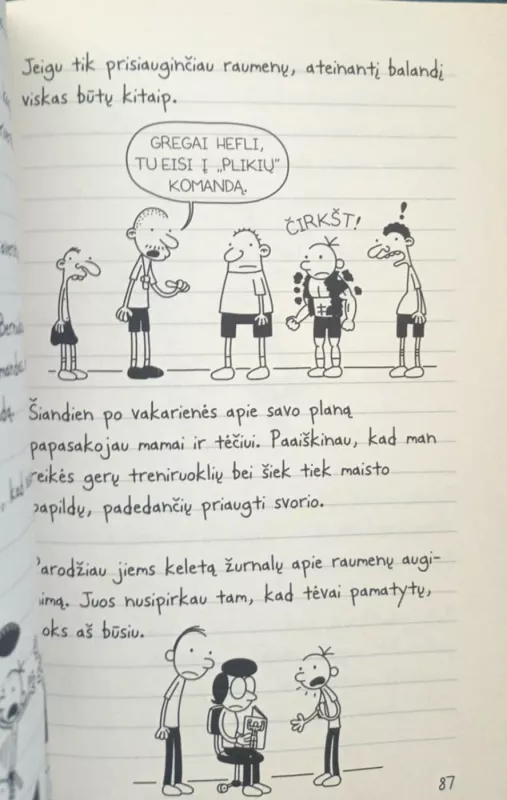 Jeigu tik prisiauginčiau raumenų, ateinantį balandį
viskas būtų kitaip.
GREGAI HEFLI,
TU EISI Į „PLIKIŲ"
KOMANDĄ.
ČIRKŠT!
!
Šiandien po vakarienės apie savo planą
papasakojau mamai ir tėčiui. Paaiškinau, kad man
reikės gerų treniruoklių bei šiek tiek maisto
papildų, padedančių priaugti svorio.
Parodžiau jiems keletą žurnalų apie raumenų augi-
nimą. Juos nusipirkau tam, kad tėvai pamatytų,
koks aš būsiu.
87